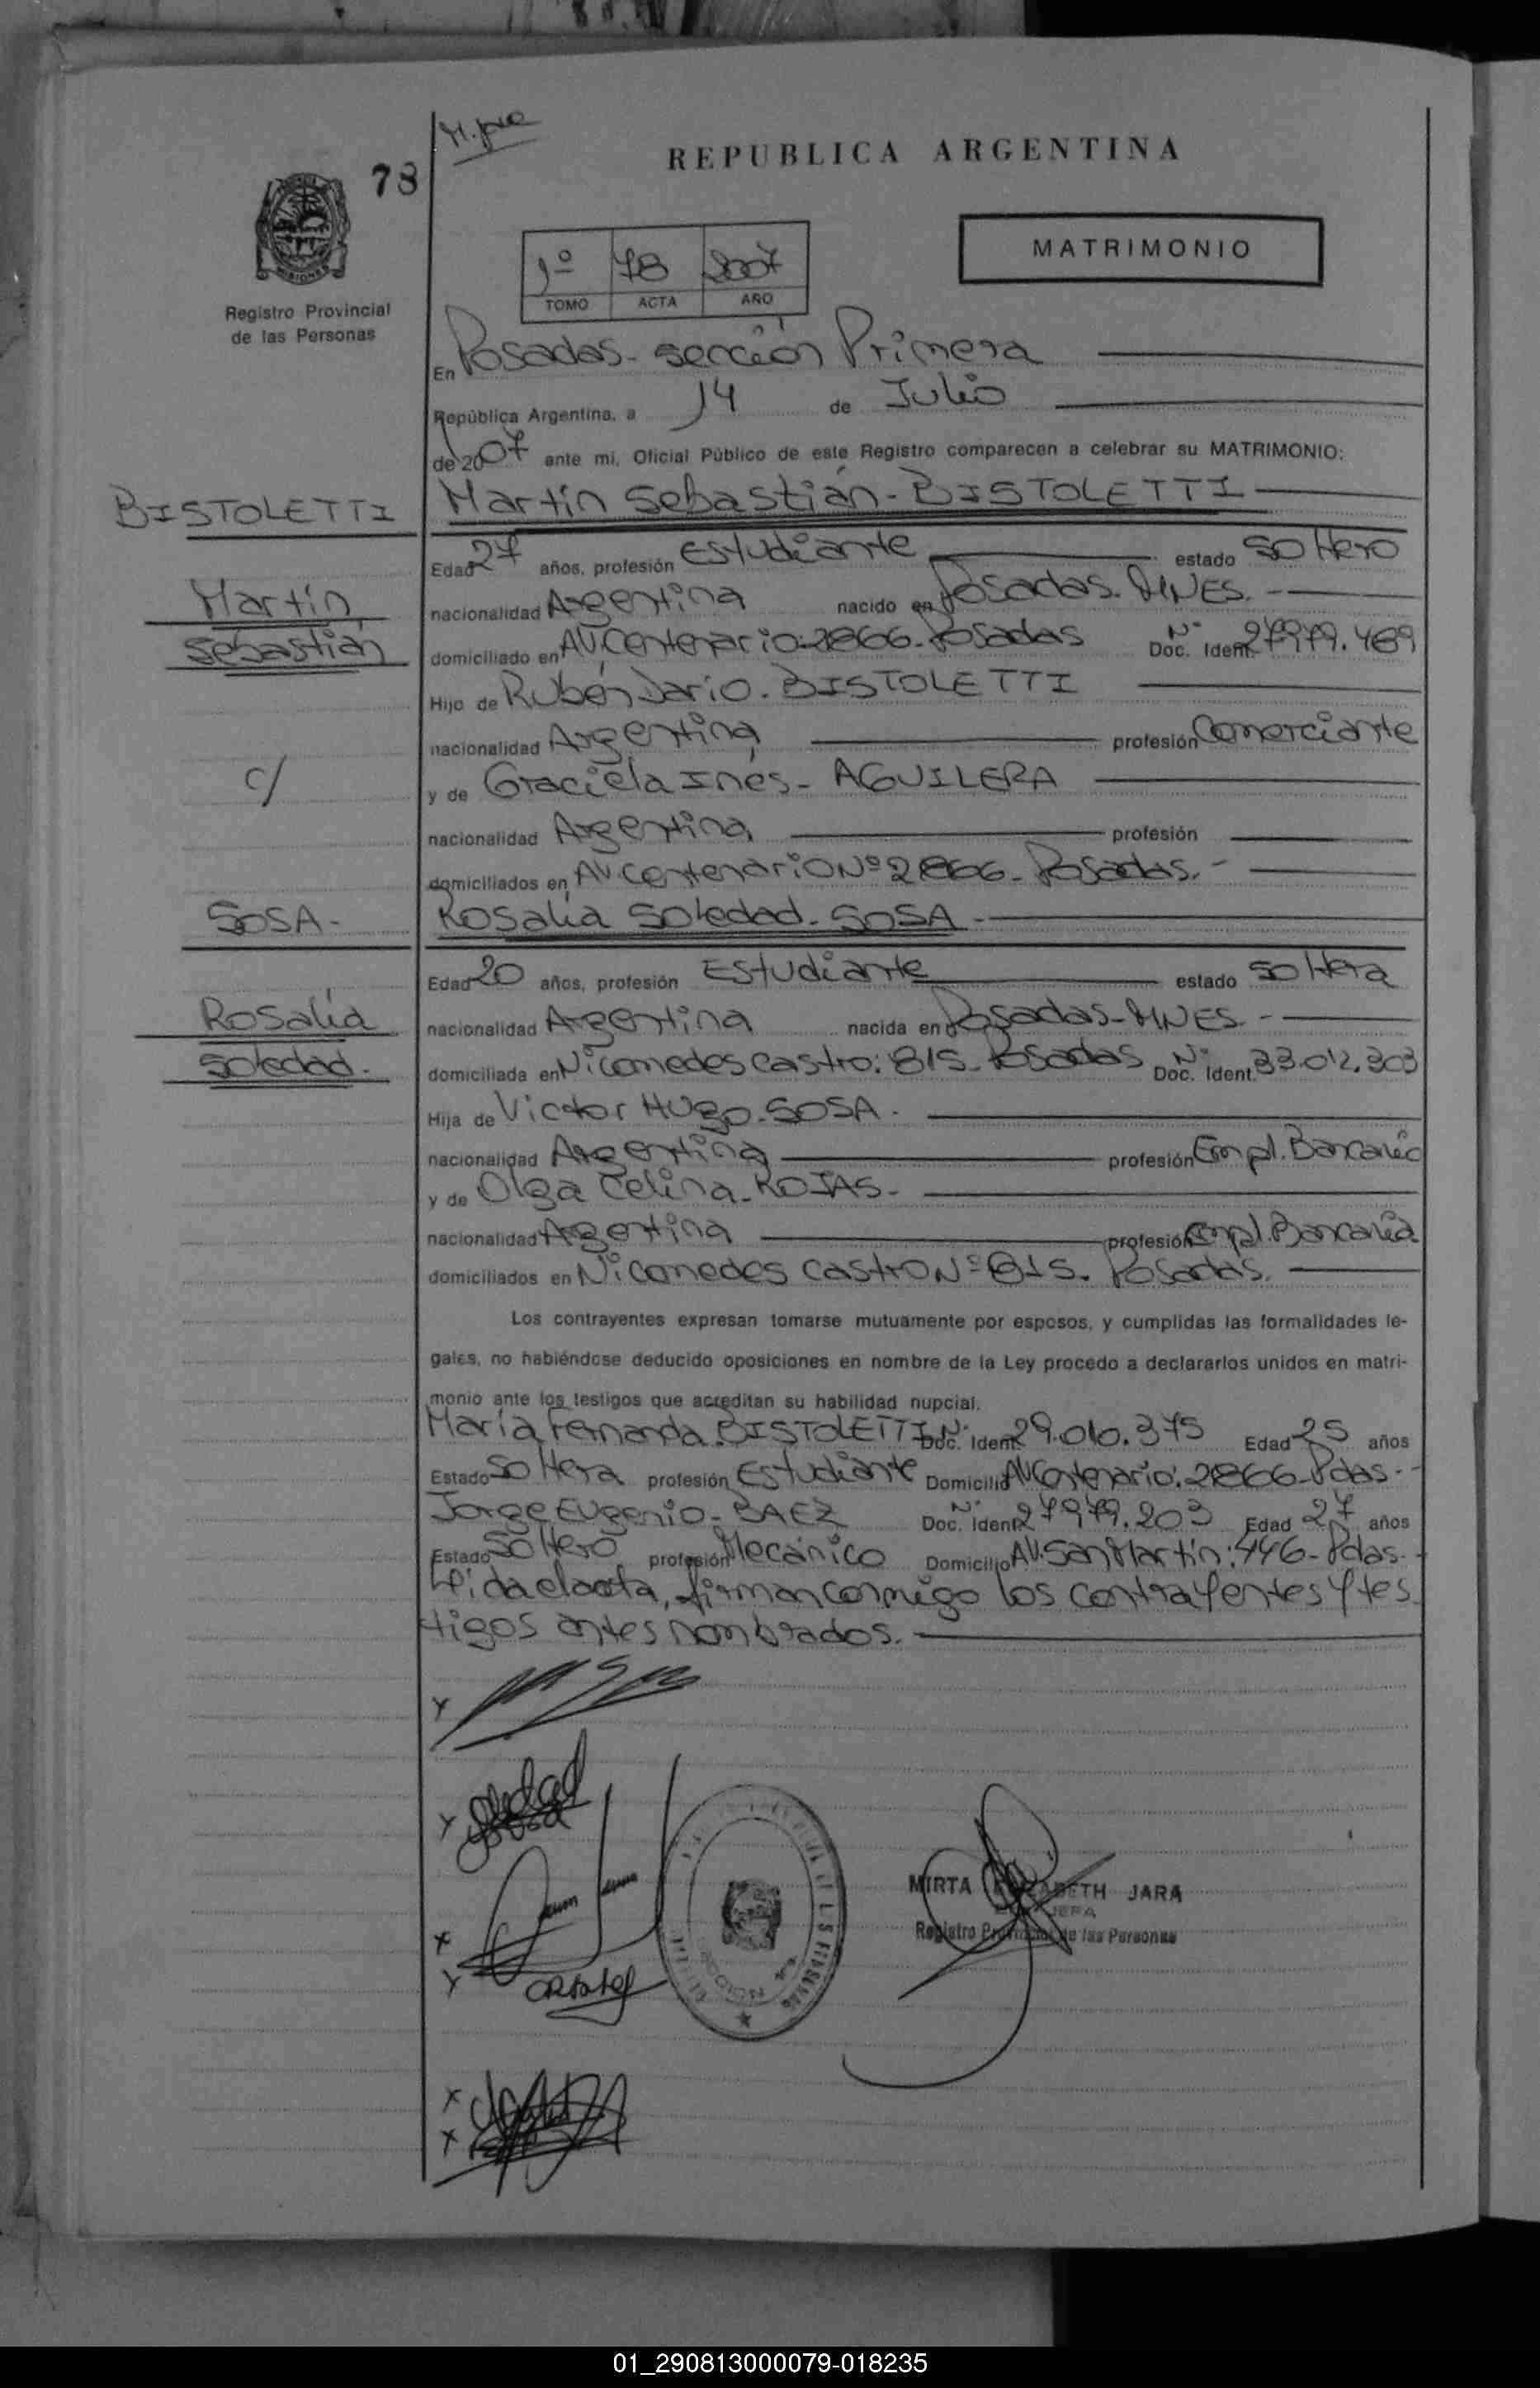 78
REPUBLICA ARGENTINA
MATRIMONIO
1º 78 2007
TOMO ACTA AÑO
MISIONES
Registro Provincial
de las Personas
En Posadas - sección Primera
República Argentina, a 14 de Julio
de 2007 ante mi, Oficial Público de este Registro comparecen a celebrar su MATRIMONIO:
BISTOLETTI
Martín Sebastián - BISTOLETTI
Edad 27 años, profesión Estudiante estado soltero
Martín
nacionalidad Argentina nacido en Posadas. MNES. -
Sebastián
domiciliado en AV. Centenario: 2866 - Posadas Nº Doc. Ident. 27979.469
Hijo de Rubén Dario. BISTOLETTI
nacionalidad Argentina profesión Comerciante
c/
y de Graciela Inés - AGUILERA
nacionalidad Argentina profesión
domiciliados en AV. Centenario Nº 2866 - Posadas. -
SOSA -
Rosalía Soledad - SOSA -
Edad 20 años, profesión Estudiante estado soltera
Rosalía
nacionalidad Argentina nacida en Posadas - MNES. -
Soledad.
domiciliada en Nicomedes Castro: 815 - Posadas Nº Doc. Ident. 33.012.303
Hija de Victor Hugo - SOSA -
nacionalidad Argentina profesión Empl. Bancario
y de Olga Celina - ROJAS -
nacionalidad Argentina profesión Empl. Bancaria
domiciliados en Nicomedes Castro Nº 815. Posadas.
Los contrayentes expresan tomarse mutuamente por esposos, y cumplidas las formalidades le-
gales, no habiéndose deducido oposiciones en nombre de la Ley procedo a declararlos unidos en matri-
monio ante los testigos que acreditan su habilidad nupcial.
María Fernanda. BISTOLETTI Nº Doc. Ident. 29.010.375 Edad 25 años
Estado Soltera profesión Estudiante Domicilio AV. Centenario: 2866 - Pdas. -
Jorge Eugenio - BAEZ Nº Doc. Ident. 27979.203 Edad 27 años
Estado Soltero profesión Mecánico Domicilio AV. San Martín: 446 - Pdas. -
Leida el acta, firman conmigo los contrayentes y tes
tigos antes nombrados.
Soledad
Sosa
MIRTA ELIZABETH JARA
JEFA
Registro Provincial de las Personas
01_290813000079-018235